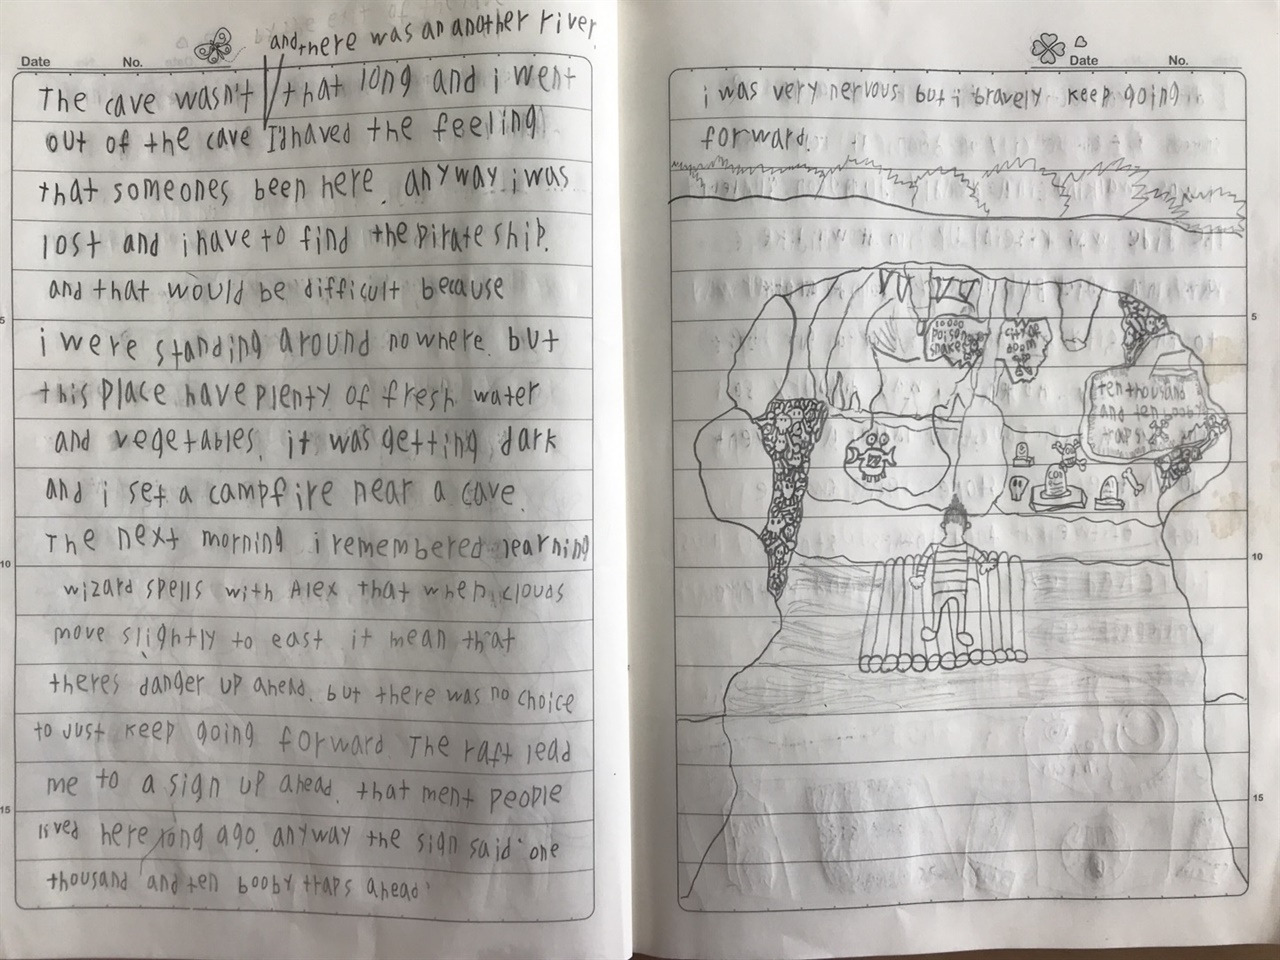 and there was an another river.
Date No.
The cave wasn't that long and i went
out of the cave I'd haved the feeling
that someones been here. anyway i was
lost and i have to find the pirate ship.
and that would be difficult because
5
i were standing around nowhere. but
this place have plenty of fresh water
and vegetables. it was getting dark
and i set a campfire near a cave.
The next morning i remembered learning
10
wizard spells with Alex that when clouds
move slightly to east it mean that
theres danger up ahead. but there was no choice
to just keep going forward. The raft lead
me to a sign up ahead. that ment people
15
lived here long ago. anyway the sign said "one
thousand and ten booby traps ahead"
Date No.
i was very nervous but i bravely keep going
forward.
5
10000
poison
snakes
city of
doom
ten thousand
and ten booby
traps
10
15